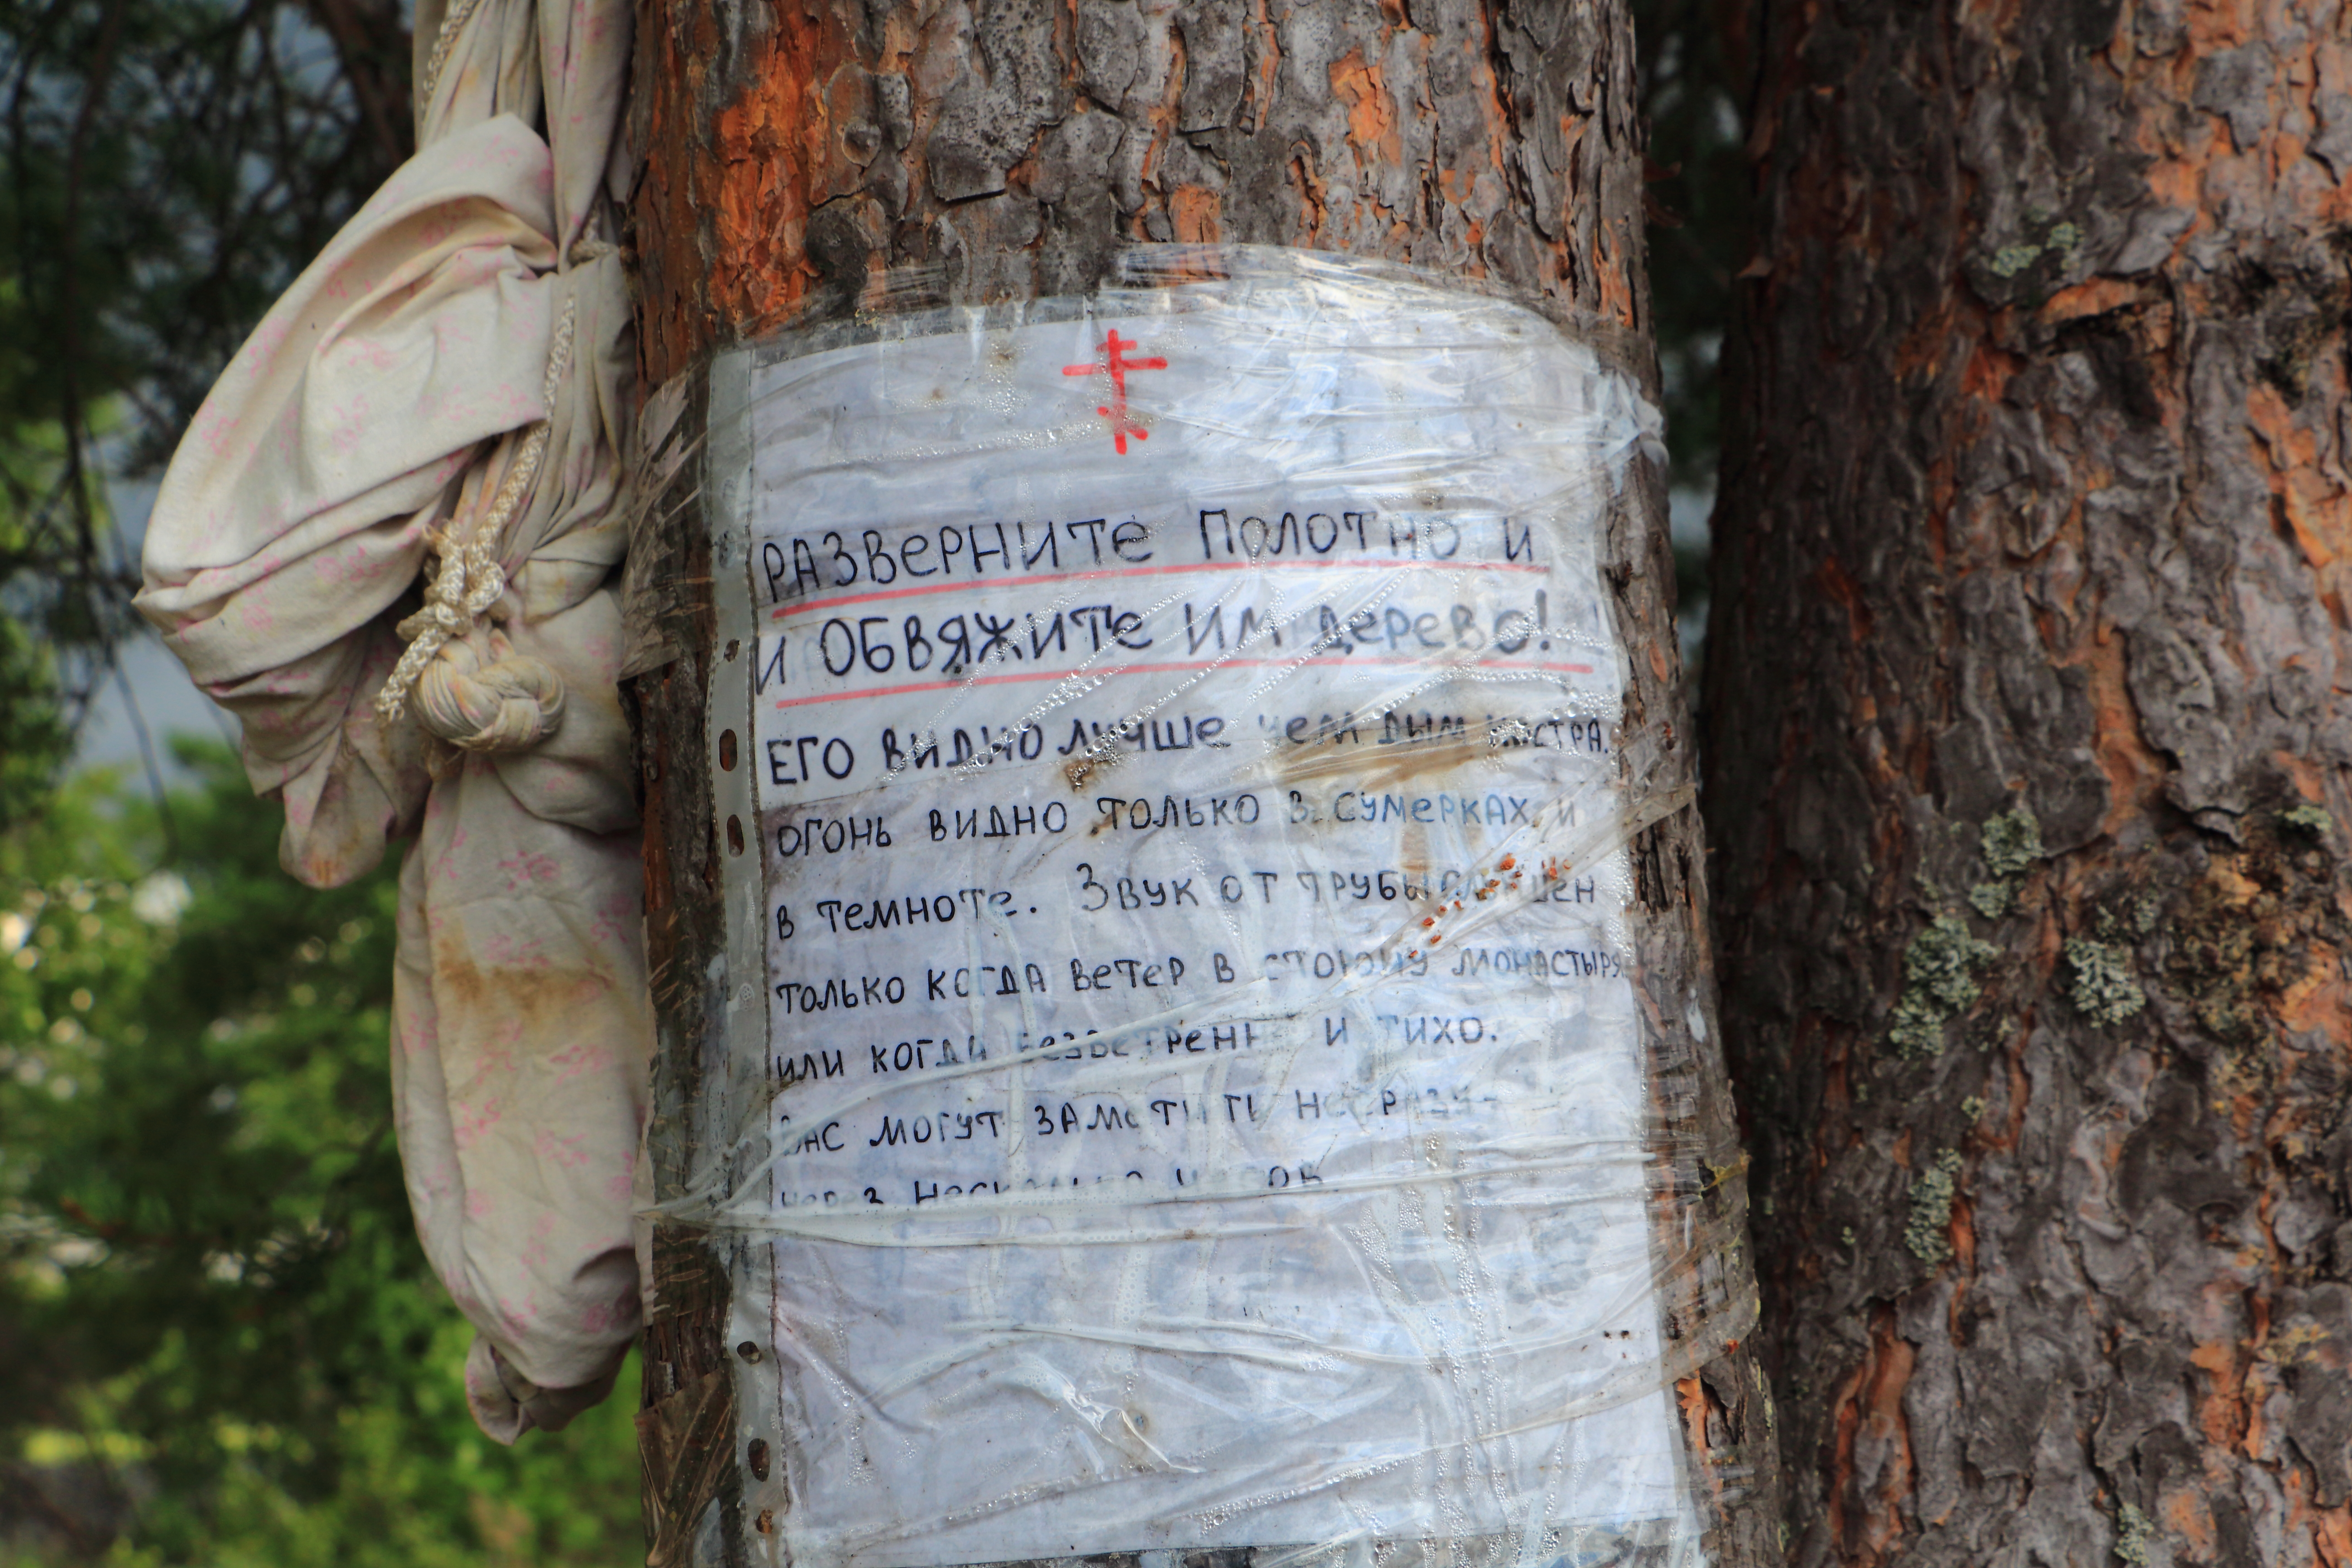 РАЗВЕРНИТЕ ПОЛОТНО И
И ОБВЯЖИТЕ ИМ ДЕРЕВО!
ЕГО ВИДНО ЛУЧШЕ ЧЕМ ДЫМ КОСТРА.
ОГОНЬ ВИДНО ТОЛЬКО В СУМЕРКАХ И
В ТЕМНОТЕ. ЗВУК ОТ ТРУБЫ СЛЫШЕН
ТОЛЬКО КОГДА ВЕТЕР В СТОРОНУ МОНАСТЫРЯ
ИЛИ КОГДА БЕЗВЕТРЕННО И ТИХО.
ВАС МОГУТ ЗАМЕТИТЬ НЕ СРАЗУ-
ЧЕРЕЗ НЕСКОЛЬКО ЧАСОВ.